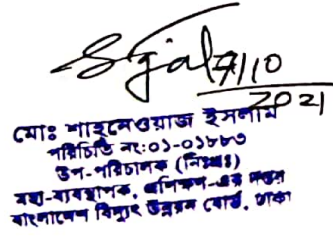 17/10
2021
মোঃ শাহনেওয়াজ ইসলাম
পরিচিতি নং:০১-০১৮৮৩
উপ-পরিচালক (নিঃপ্রঃ)
মহা-ব্যবস্থাপক, প্রশিক্ষণ-এর দপ্তর
বাংলাদেশ বিদ্যুৎ উন্নয়ন বোর্ড, ঢাকা